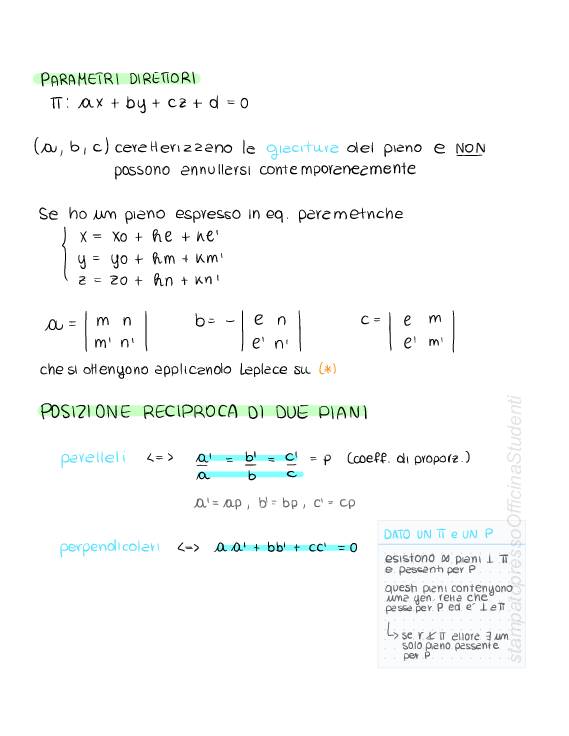 PARAMETRI DIRETTORI
π: ax + by + cz + d = 0
(a, b, c) caratterizzano la giacitura del piano e NON
possono annullarsi contemporaneamente
Se ho un piano espresso in eq. parametriche
x = x0 + he + ke'
y = y0 + hm + km'
z = z0 + hn + kn'
a = | m n | b = - | e n | c = | e m |
| m' n' | | e' n' | | e' m' |
che si ottengono applicando Laplace su (*)
POSIZIONE RECIPROCA DI DUE PIANI
paralleli <=> a'/a = b'/b = c'/c = p (coeff. di proporz.)
a' = ap, b' = bp, c' = cp
perpendicolari <-> aa' + bb' + cc' = 0
DATO UN π e UN P
esistono ∞ piani ⊥ π
e passanti per P
questi piani contengono
una gen. retta che
passa per P ed e' ⊥ a π
↳ se r ⊥̸ π allora ∃ un
solo piano passante
per P
stampatopressoOfficinaStudenti